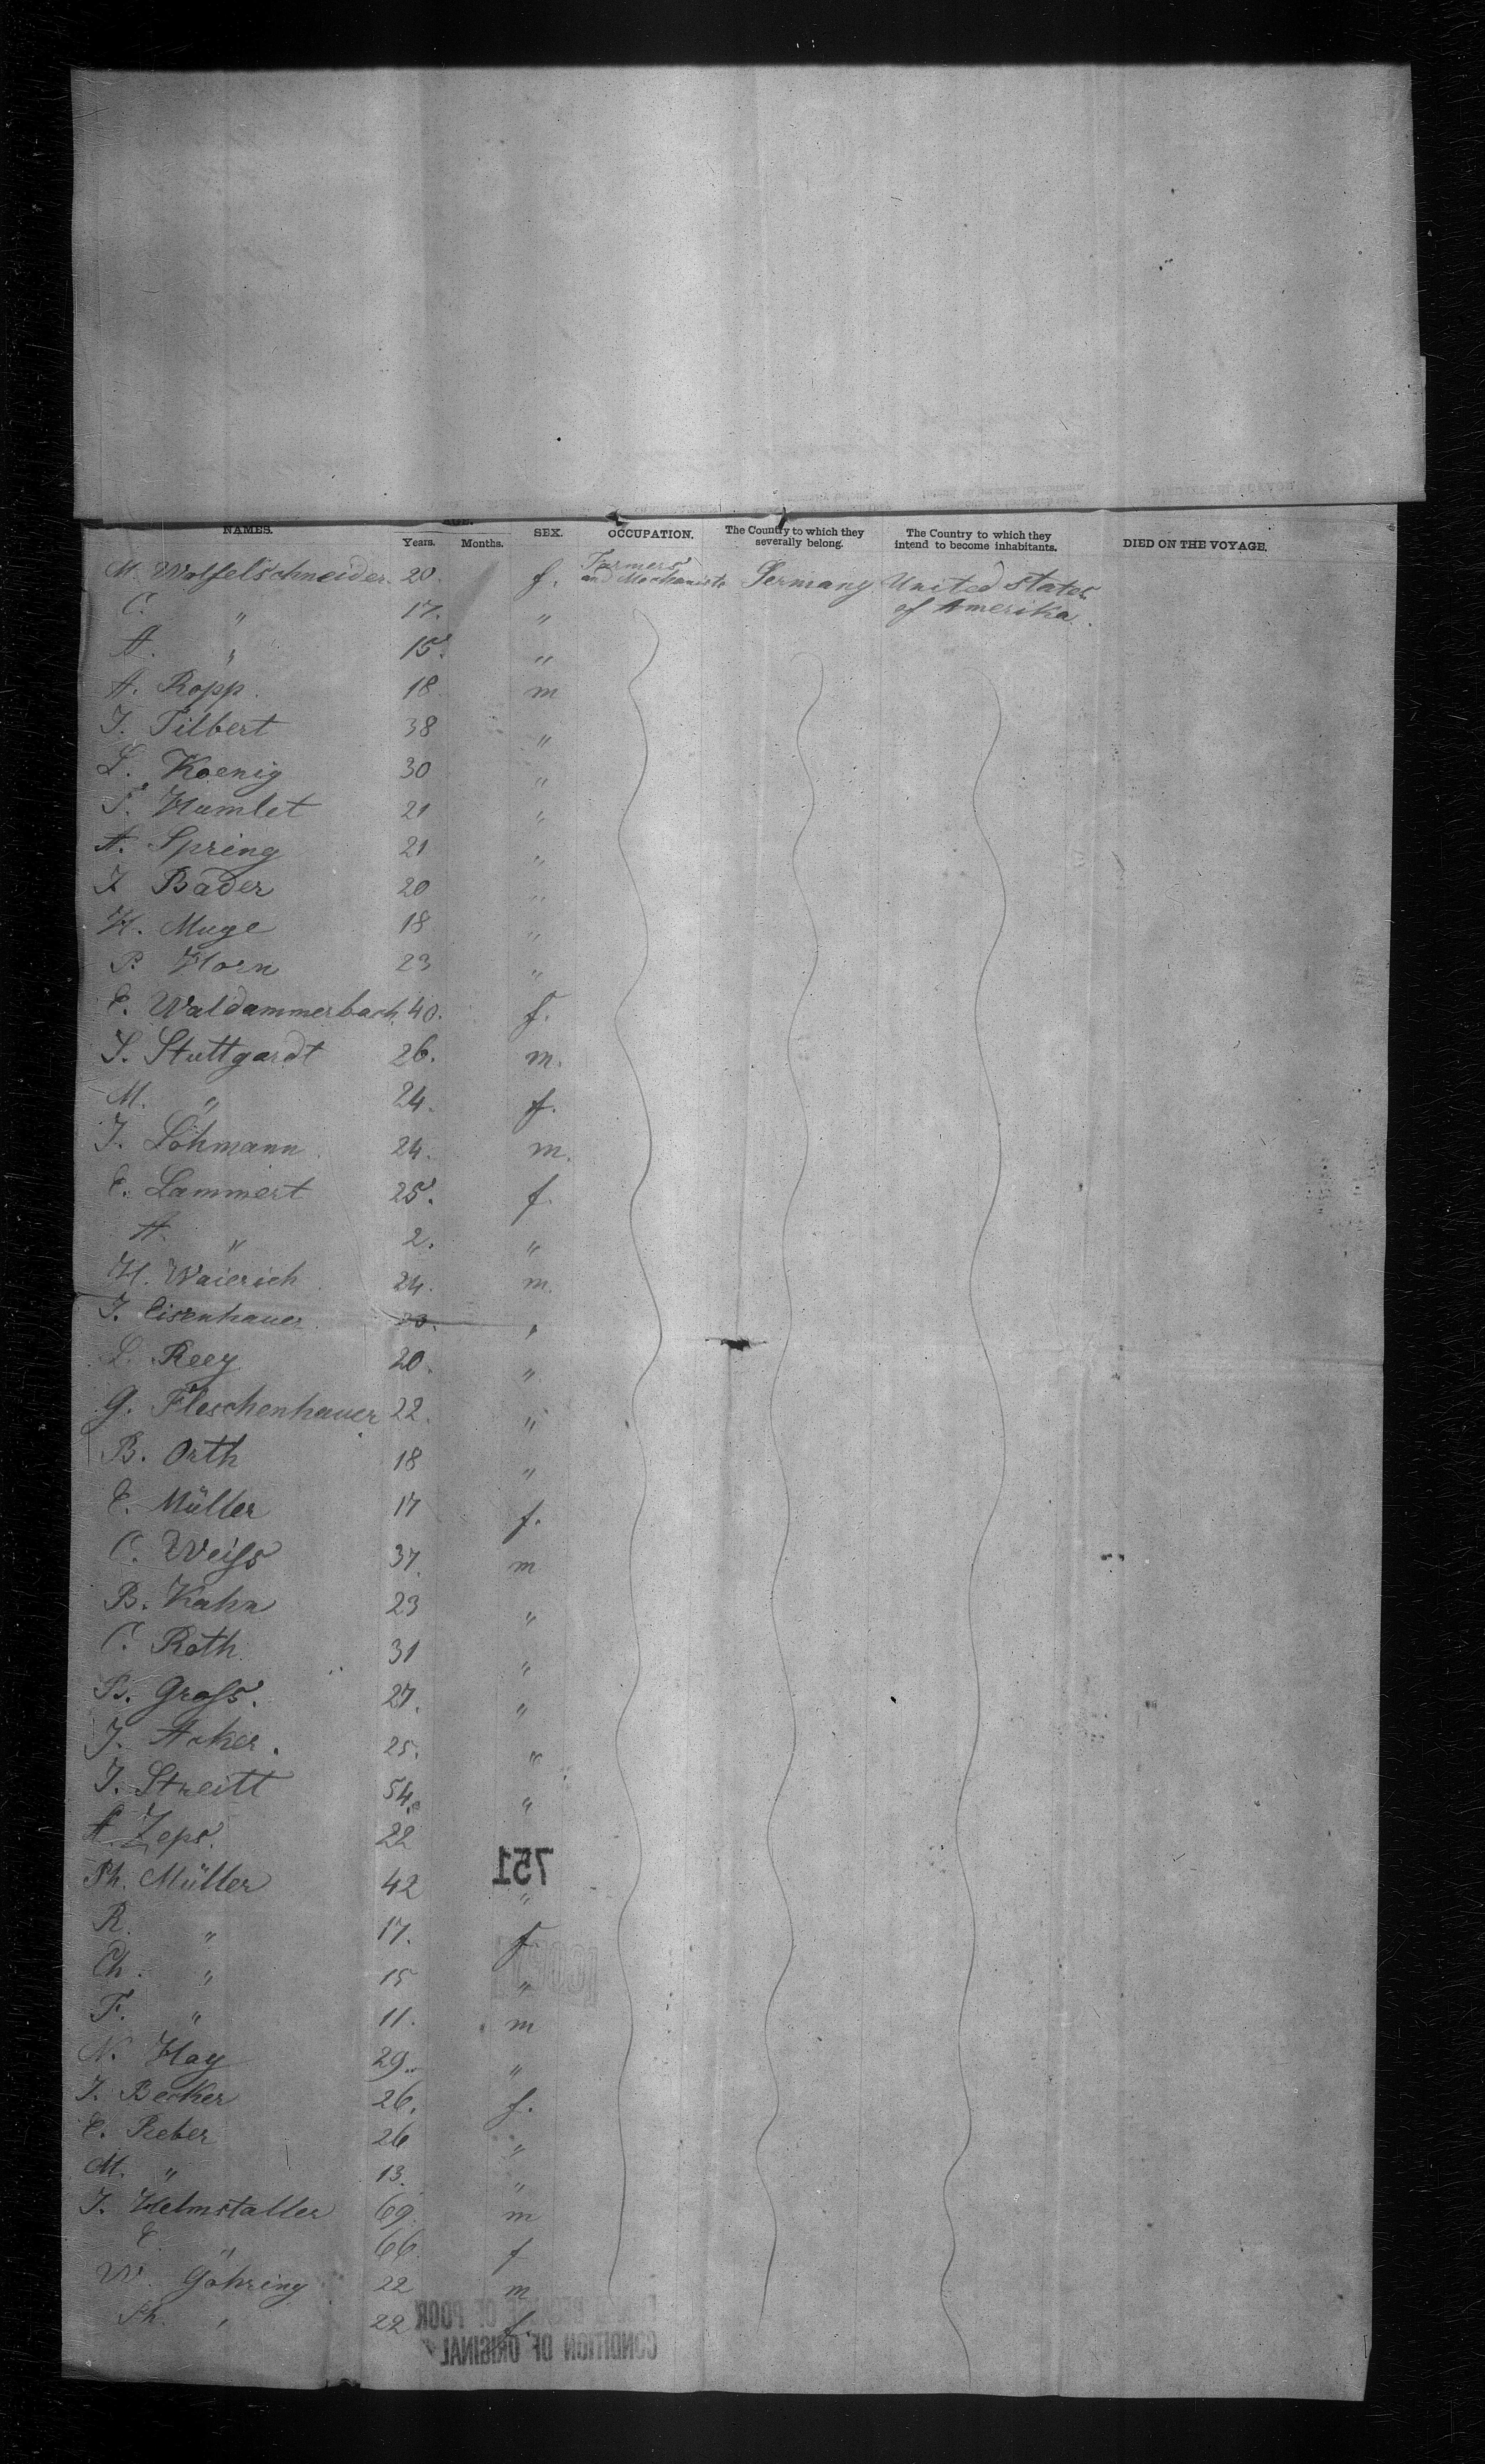 NAMES. AGE. SEX. OCCUPATION. The Country to which they severally belong. The Country to which they intend to become inhabitants. DIED ON THE VOYAGE.
Years. Months.
M. Wolfelschneider 20. f. Farmers and Mechanists Germany United States
C. " 17. " of Amerika.
A. " 15. "
A. Ropp. 18. m
J. Tilbert 38 "
L. Koenig 30 "
F. Humlet 21 "
A. Spring 21 "
J. Bader 20 "
H. Muge 18 "
P. Horn 23 "
E. Waldammerbach. 40. f.
S. Stuttgardt 26. m.
M. " 24. f.
J. Löhmann 24. m.
E. Lammert 25. f.
A. " 2. "
H. Waierich 24. m.
J. Eisenhauer 20. "
L. Reeg 20. "
G. Fleschenhauer 22. "
B. Orth 18 "
E. Müller 17 f.
C. Weiss 37. m
B. Kahn 23 "
C. Roth 31 "
B. Gross. 27. "
J. Acker. 25. "
J. Streitt 54. "
A. Zeps. 22
751
Ph. Müller 42 "
R. " 17. f
Ch. " 15 "
F. " 11. m
N. Hay 29. "
J. Becker 26. f.
E. Reber 26 "
M. " 13. "
J. Helmstaller 69. m
E. " 66. f
W. Göhring 22 m
Ph. " 22 f.
OF POOR
CONDITION OF ORIGINAL